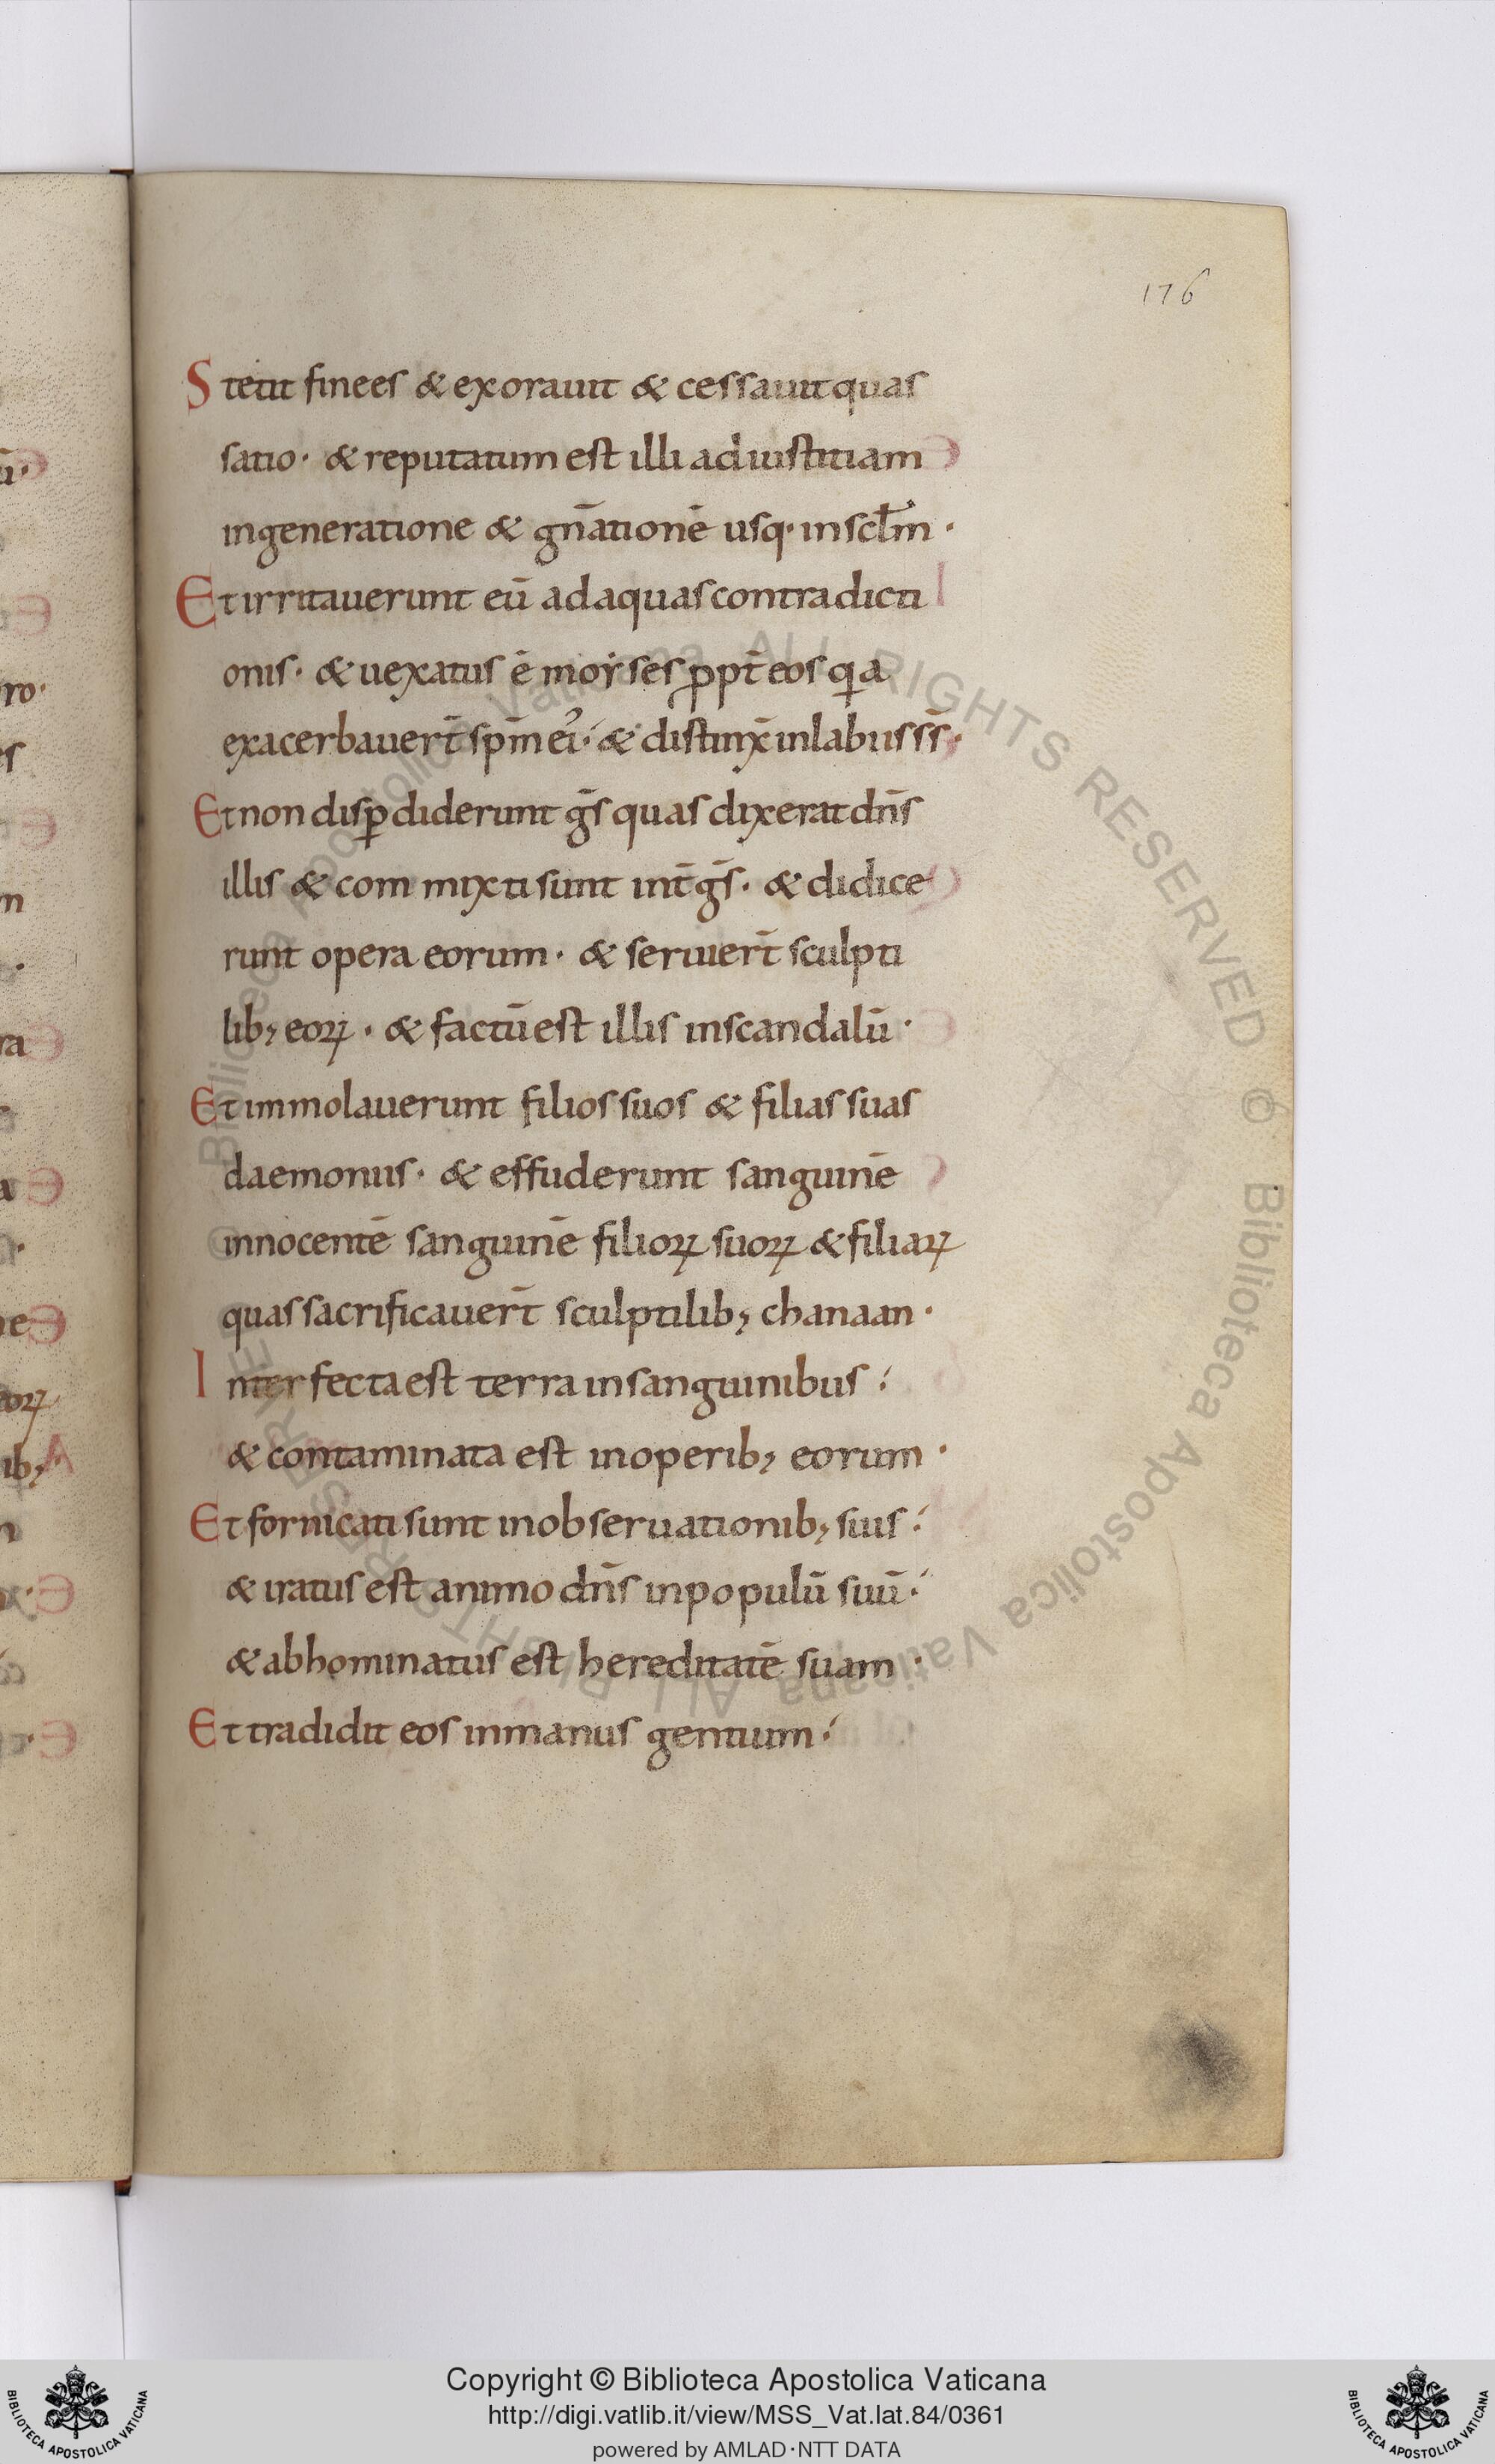 176
Stetit finees & exorauit & cessauit quas
satio· & reputatum est illi ad iustitiam
in generatione & gn̄ationē usq· in sc̄lm·
Et irritauerunt eū ad aquas contradicti
onis· & uexatus ē moẏses ꝓpt̄ eos qia
exacerbauer̄t sp̄m ei᾿ & distinx̄ in labiis s̄s·
Et non disꝑdiderunt ḡs quas dixerat dn̄s
illis & com mixti sunt int̄ ḡs· & didice
runt opera eorum· & seruier̄t sculpti
lib; eoꝝ· & factū est illis in scandalū·
Et immolauerunt filios suos & filias suas
daemoniis· & effuderunt sanguinē
innocentē sanguinē filioꝝ suoꝝ & filiaꝝ
quas sacrificauer̄t sculptilib; chanaan·
Inter fecta est terra in sanguinibus :
& contaminata est in operib; eorum·
Et fornicati sunt in obseruationib; suis :
& iratus est animo dn̄s in populū suū :
& abhominatus est hereditatē suam·
Et tradidit eos in manus gentium :
Biblioteca Apostolica Vaticana ALL RIGHTS RESERVED © Biblioteca Apostolica Vaticana ALL RIGHTS RESERVED ©
BIBLIOTECA APOSTOLICA VATICANA
Copyright © Biblioteca Apostolica Vaticana
http://digi.vatlib.it/view/MSS_Vat.lat.84/0361
powered by AMLAD·NTT DATA
BIBLIOTECA APOSTOLICA VATICANA